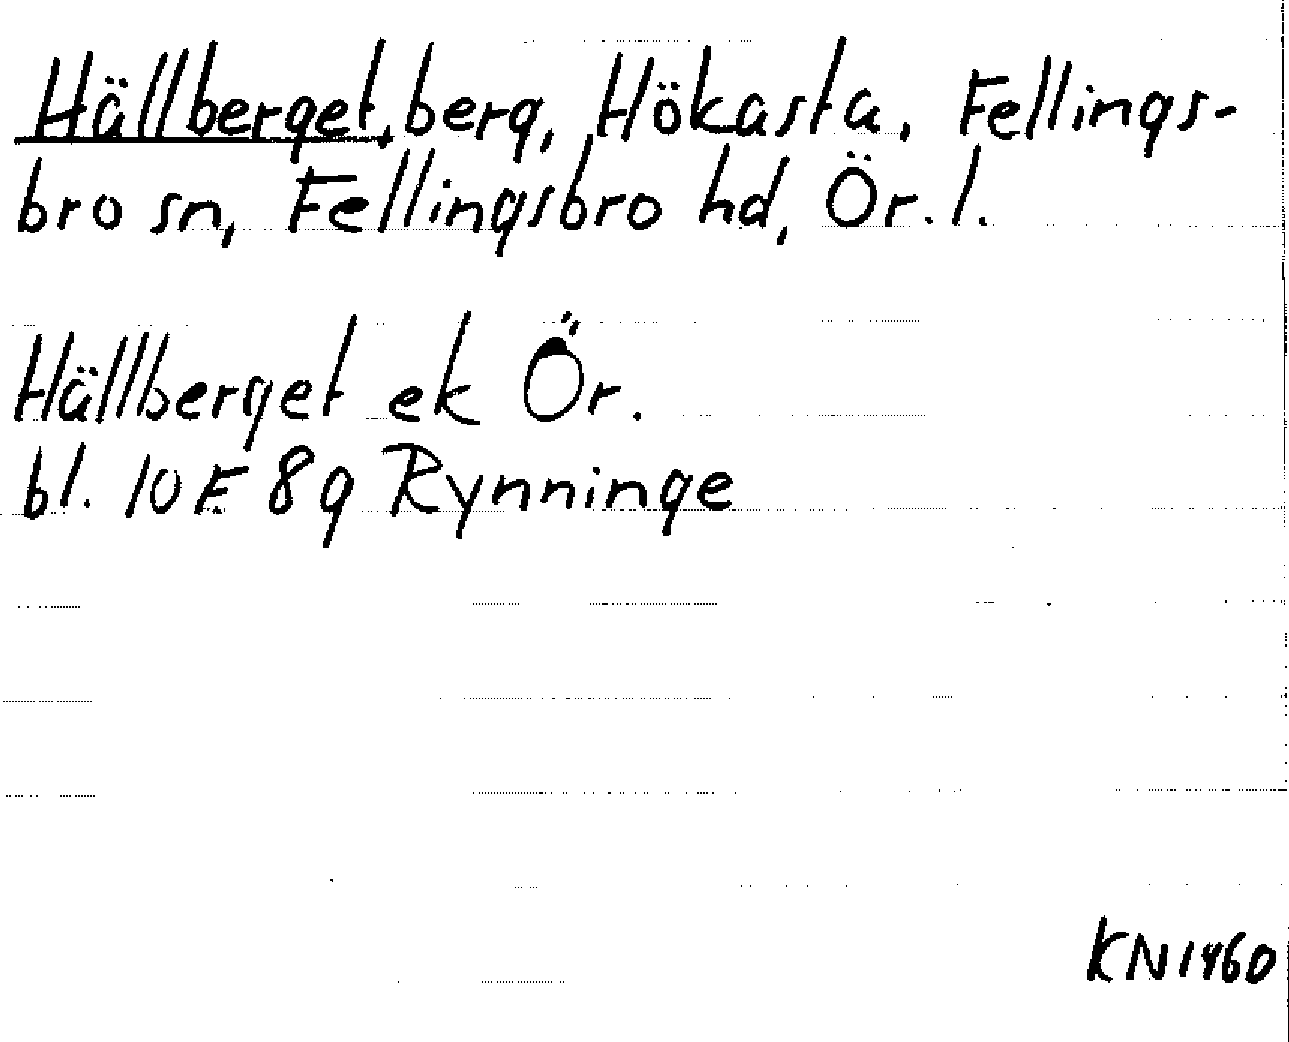 Hällberget, berg, Hökasta, Fellings-
bro sn, Fellingsbro hd, Ör. l.
Hällberget ek Ör.
bl. 10F 8g Rynninge
KN1960